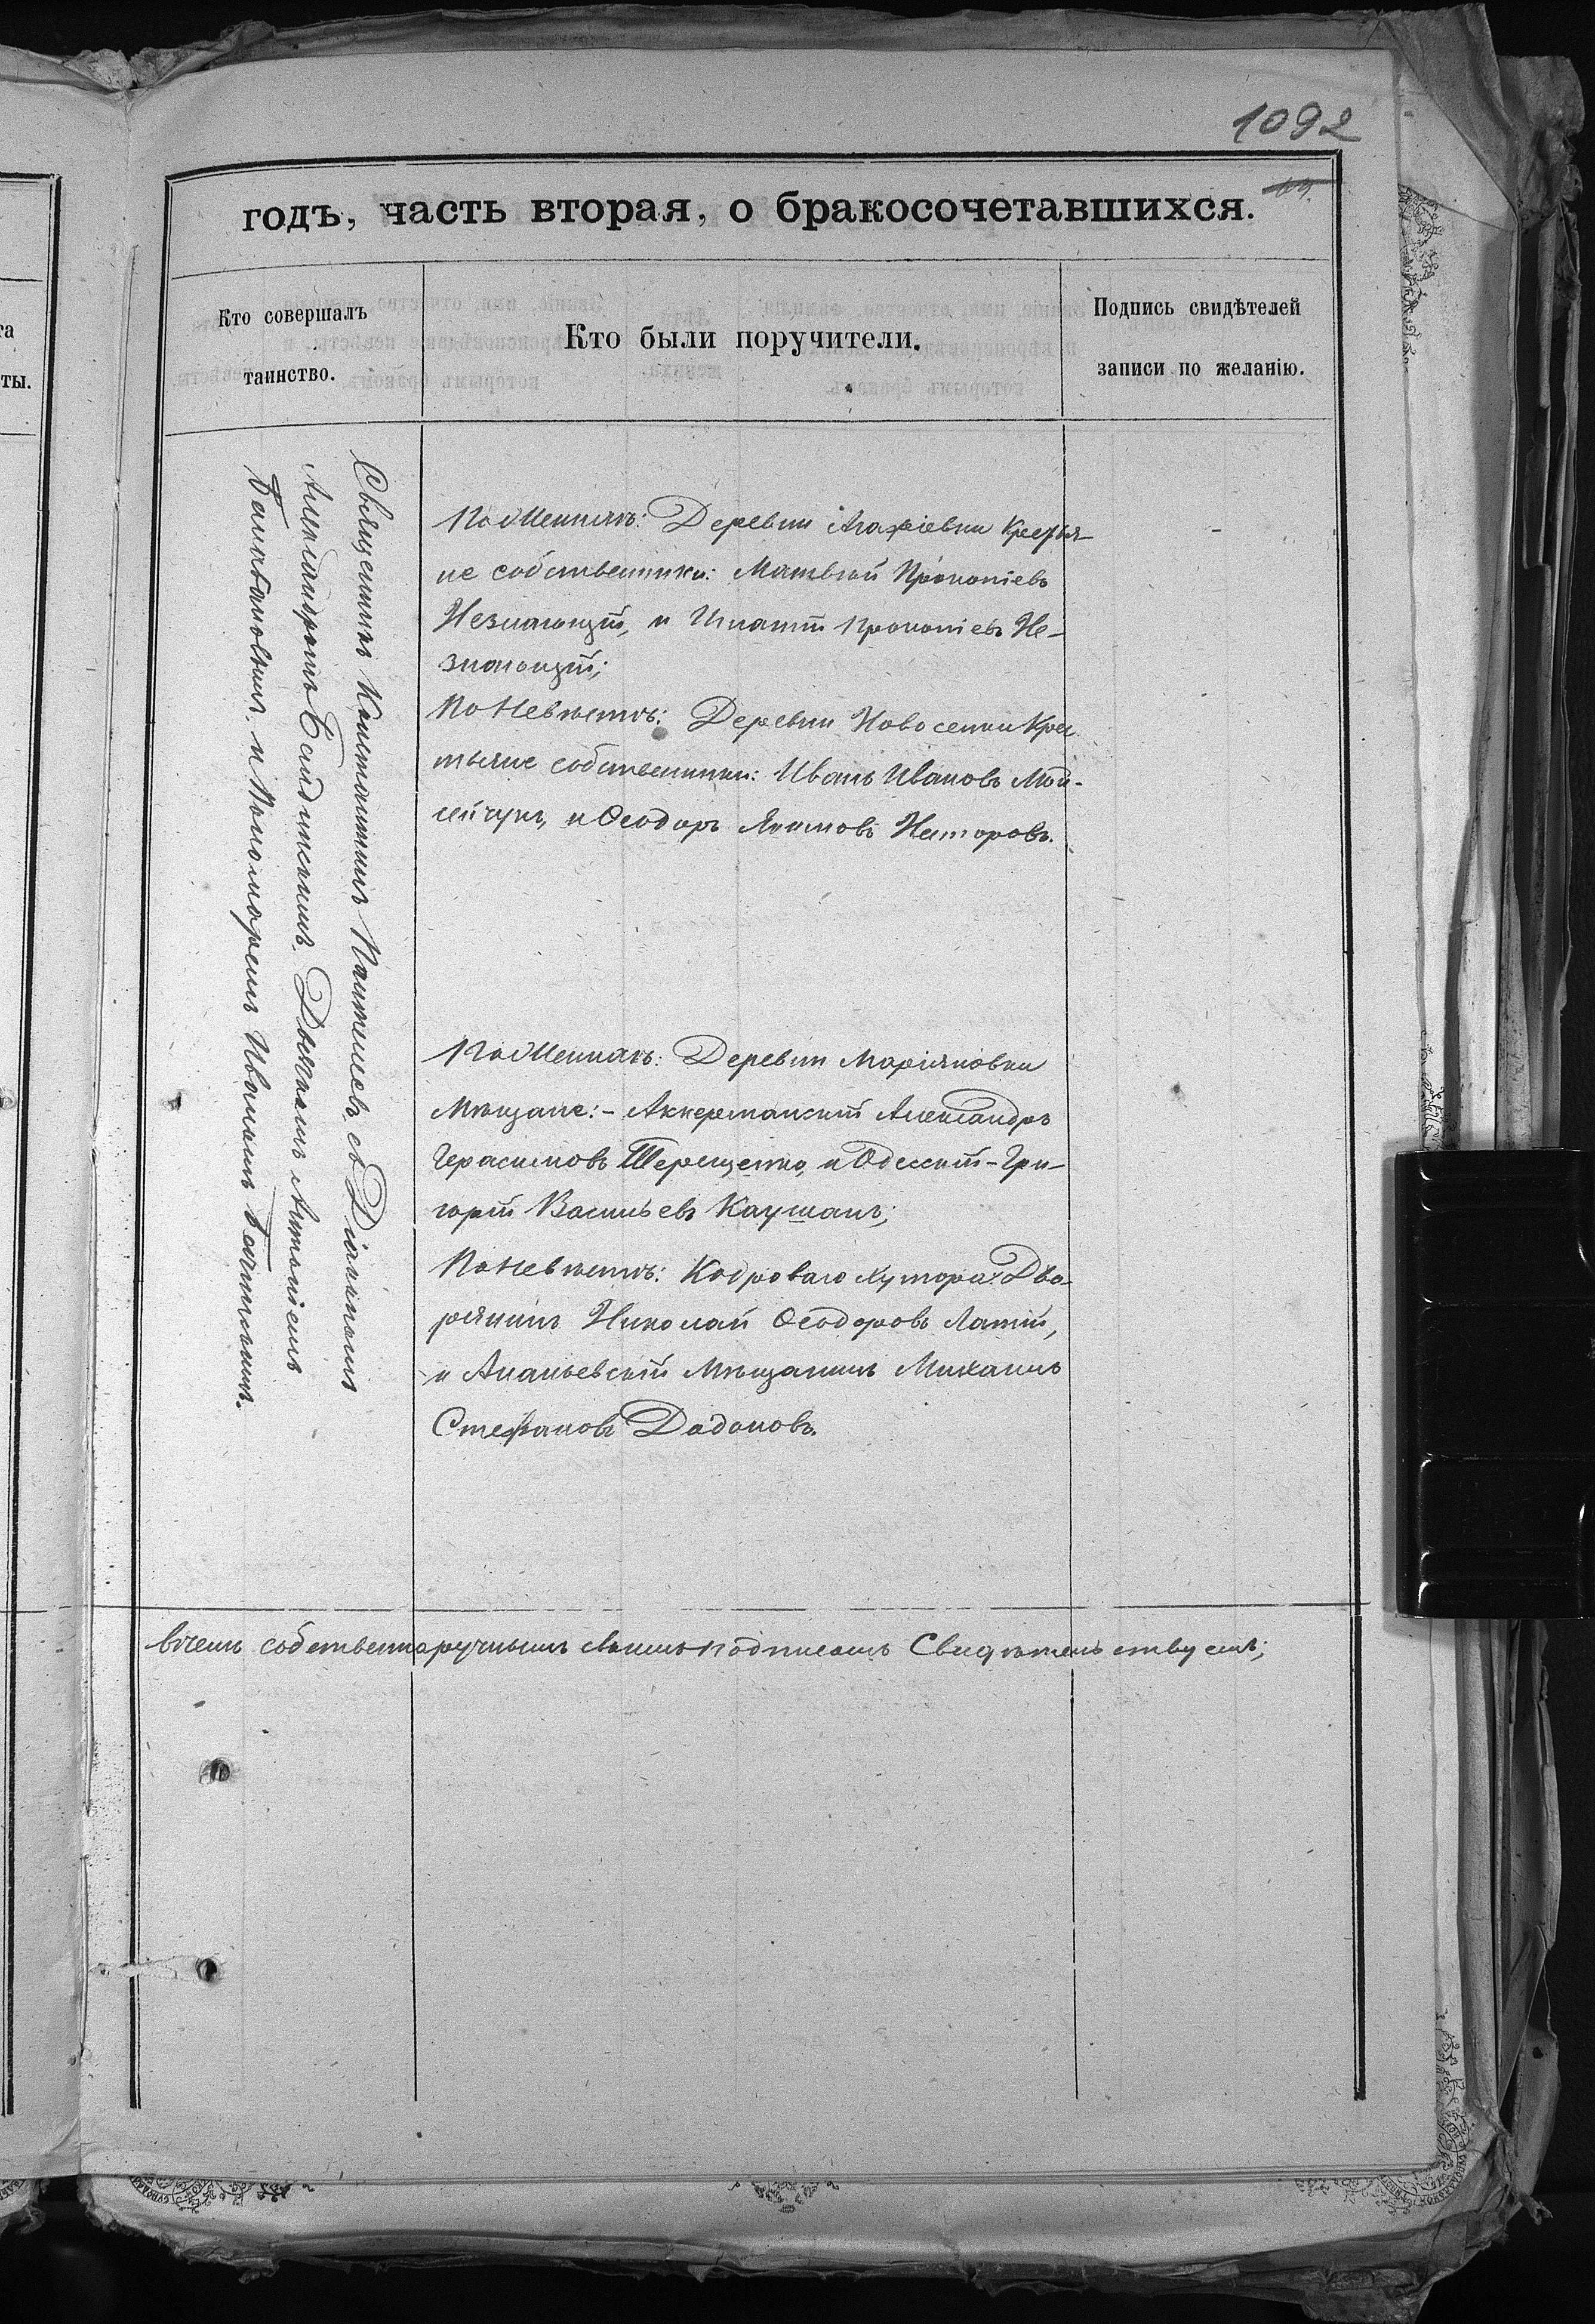 1092
годъ, часть вторая, о бракосочетавшихся.
та
ты.
Кто совершалъ
таинство.
Кто были поручители.
Подпись свидѣтелей
записи по желанію.
Священникъ Константинъ Пантелеевъ съ Діакономъ
Александромъ Доячкомъ Антоніемъ
и Пономаремъ Иваномъ
По Женихѣ: Деревни Агафіевки Крестья-
не собственники: Матвѣй Прокопіевъ
Незнающій, и Игнатій Прокопіевъ Не-
знающій;
По Невѣстѣ: Деревни Новоселки Крес
тьяне собственники: Иванъ Ивановъ Мой-
сейчукъ, и Ѳеодоръ Якимовъ Несторовъ.
По Женихѣ: Деревни Маріяновки
Мѣщане:- Аккерманскій Александръ
Герасимовъ Терещенко, и Одесскій-Гри-
горій Васильевъ Каушанъ;
По Невѣстѣ: Кодроваго Хутора Дво-
рянинъ Николай Ѳеодоровъ Латій,
и Ананьевскій Мѣщанинъ Михаилъ
Стефановъ Дадоновъ.
въ чемъ собственноручнымъ своимъ подписомъ Свидѣтельствуемъ;